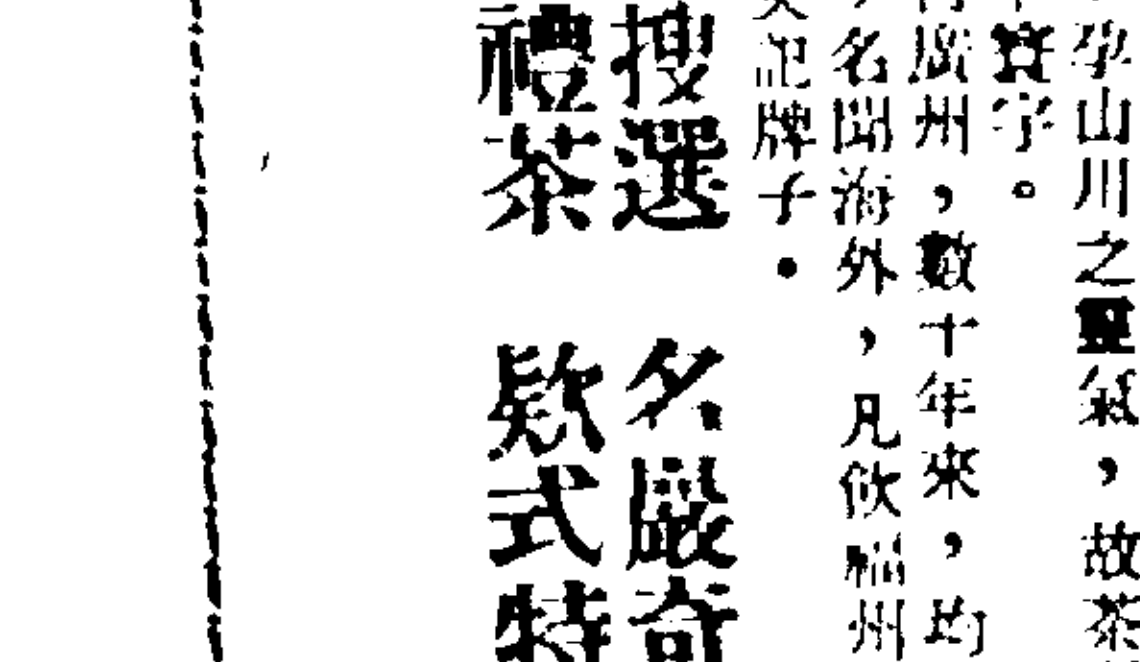 孕山川之靈氣，故茶
字。
廣州，數十年來，均
名聞海外，凡飲福州
記牌子．
搜選　名巖奇
禮茶　欵式特